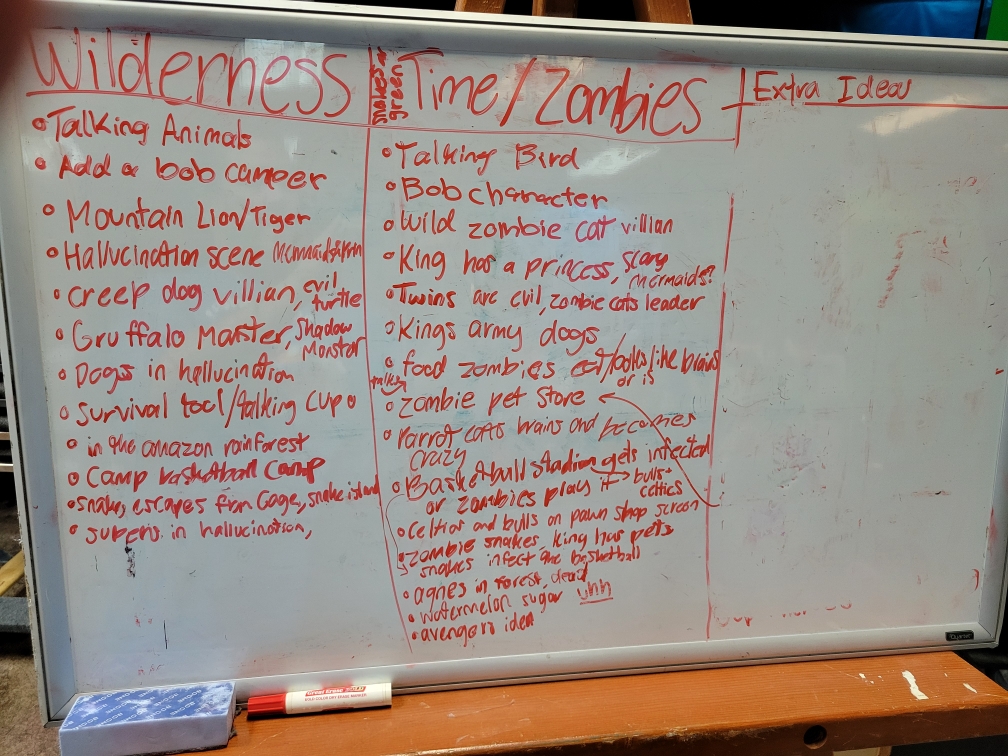 Wilderness
• Talking Animals
• Add a bob camper
• Mountain Lion/Tiger
• Hallucination scene
• Creep dog villian, evil turtle
• Gruffalo Marster, Shadow Monstar
• Dogs in hallucination
• Survival tool/talking cup
• in the amazon rainforest
• Camp basketball camp
• snake, escapes from cage, snake island
• in hallucination,
green
Time/Zombies
• Talking Bird
• Bob character
• Wild zombie cat villian
• King has a princess, scary mermaids?
• Twins are evil, zombie cats leader
• Kings army dogs
• food zombies eat/looks like brains
or is
talking
• zombie pet store
• parrot eats brains and becomes
crazy
• Basketball stadium gets infected
or zombies play it → bulls+
celtics
• Celtics and bulls on pawn shop screen
• Zombie snakes, king has pets
snakes infect the basketball
• agnes in forest, dead
• watermelon sugar uhh
• avengers idea
Extra Ideas
EXPO